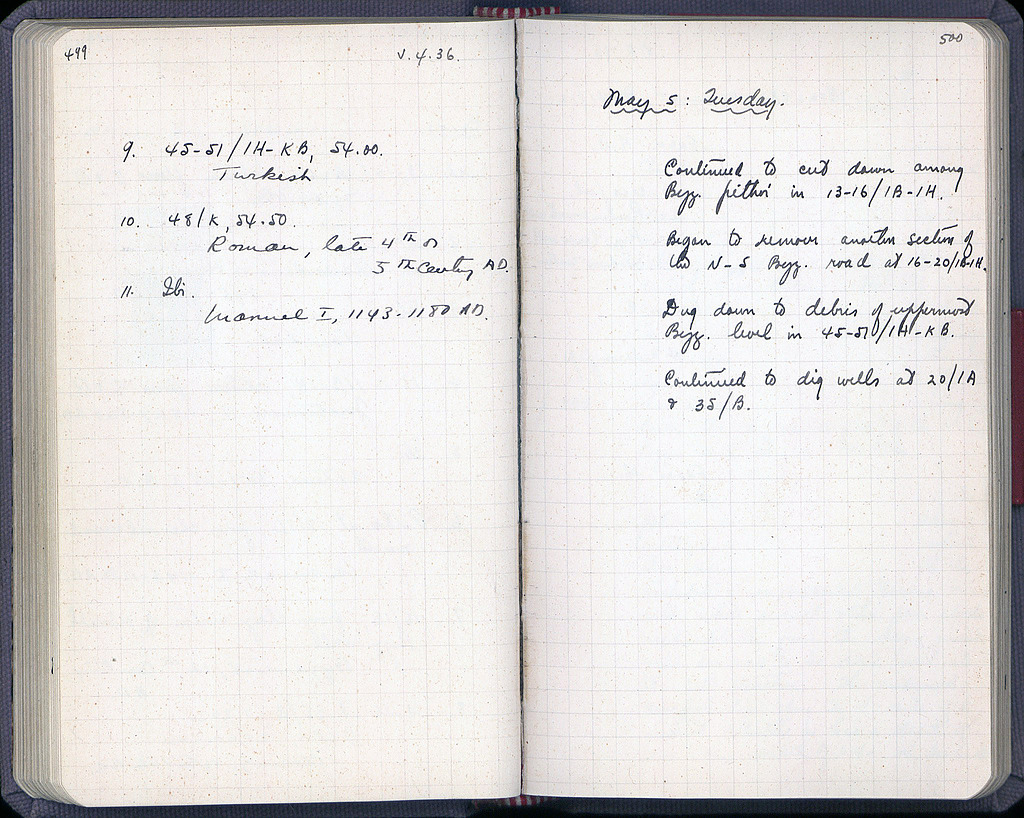 499
V. 4. 36.
9. 45-51/1H-KB, 54.00.
Turkish
10. 48/K, 54.50.
Roman, late 4TH or
5TH Century AD.
11. Ibi.
Manuel I, 1143-1180 AD.
500
May 5: Tuesday.
Continued to cut down among
Byz. pithoi in 13-16/1B-1H.
Began to remove another section of
the N-S Byz. road at 16-20/1B-1H.
Dug down to debris of uppermost
Byz. level in 45-51/1H-KB.
Continued to dig wells at 20/1A
& 35/B.